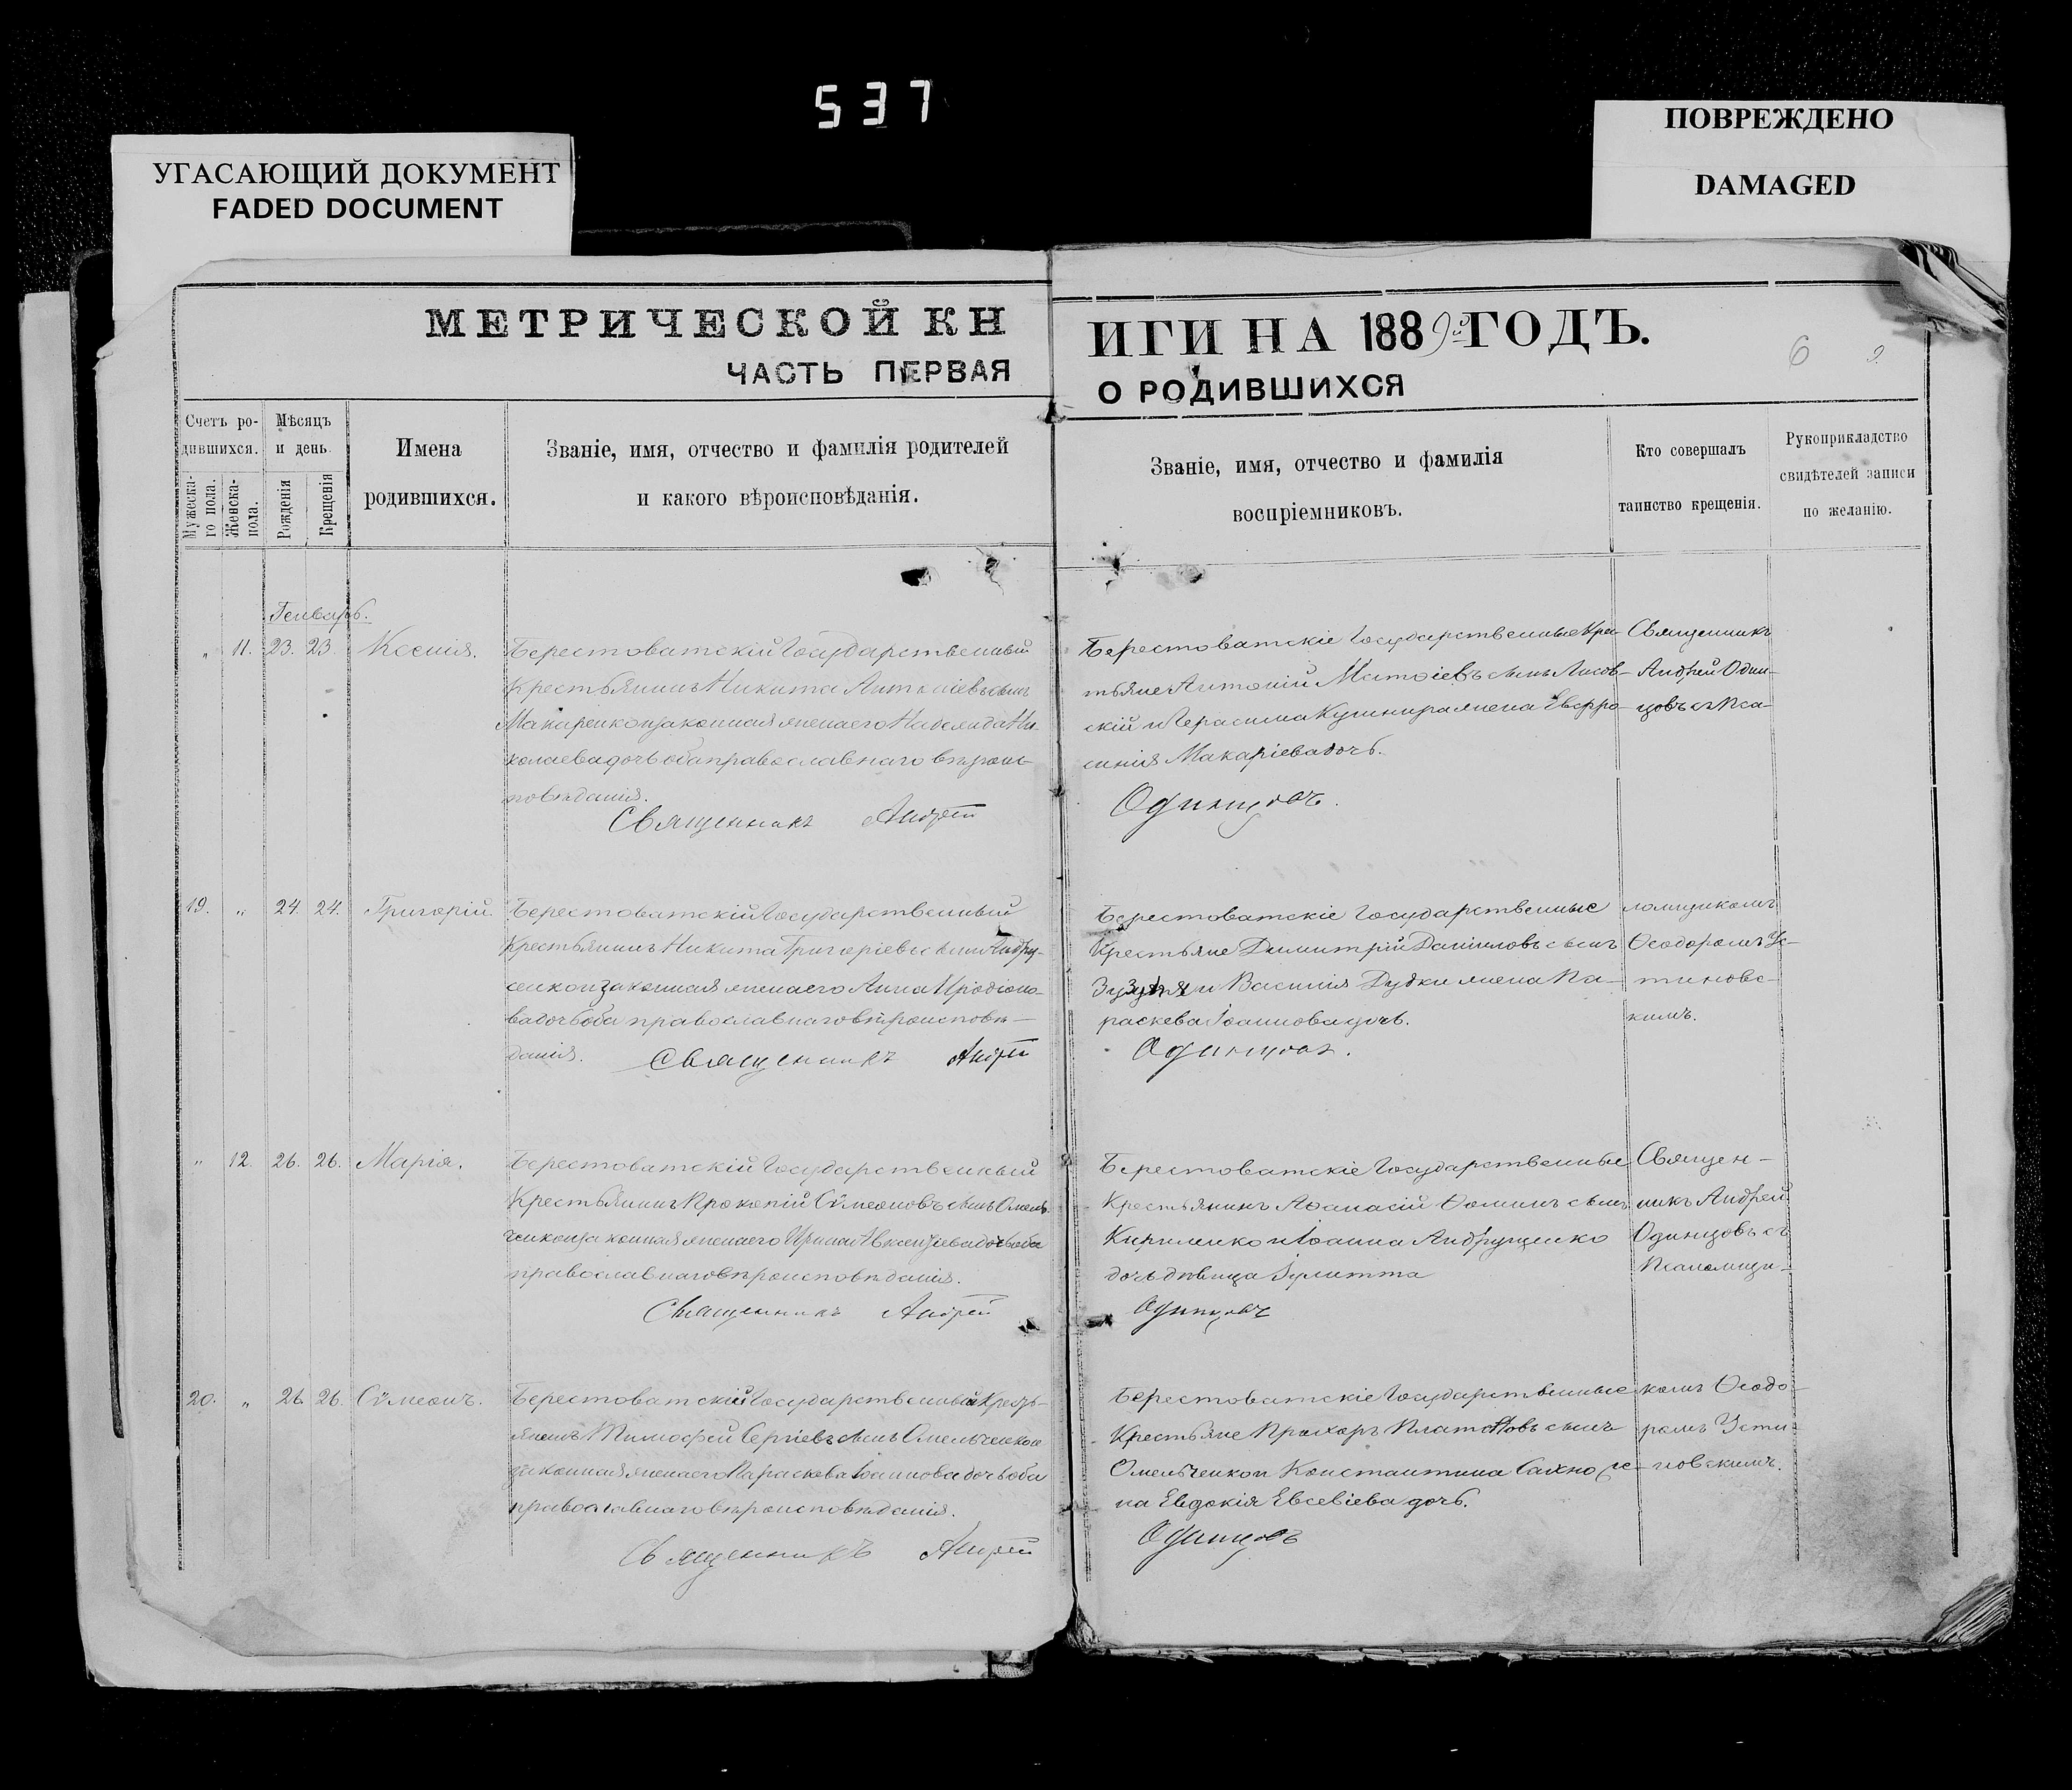 537
УГАСАЮЩИЙ ДОКУМЕНТ
FADED DOCUMENT
ПОВРЕЖДЕНО
DAMAGED
МЕТРИЧЕСКОЙ КН
ЧАСТЬ ПЕРВАЯ
ИГИ НА 1889й ГОДЪ.
О РОДИВШИХСЯ
6
Счетъ ро-
дившихся.
Мужеска-
го пола.
Женска-
пола.
Мѣсяцъ
и день.
Рожденія
Крещенія
Имена
родившихся.
Званіе, имя, отчество и фамилія родителей
и какого вѣроисповѣданія.
Званіе, имя, отчество и фамилія
воспріемниковъ.
Кто совершалъ
таинство крещенія.
Рукоприкладство
свидѣтелей записи
по желанію.
Генварь.
„ 11. 23. 23. Ксенія.
Берестоватскій Государственный
Крестьянинъ Никита сынъ
Макаренко и законная жена его Ни-
колаева дочь оба православнаго вѣроис-
повѣданія.
Священникъ Андрей
Берестоватскіе Государственные Кре-
тьяне Антоній Матѳіевъ сынъ Лисов-
скій и Герасима Кушнира жена Евфро-
синія Макаріева дочь.
Одинцовъ.
Священникъ
Андрей Один-
цовъ съ Пса-
19. „ 24. 24. Григорій.
Берестоватскій Государственный
Крестьянинъ Никита Григоріевъ сынъ Андру-
сенко и законная жена его Анна Иродіоно-
ва дочь оба православнаго вѣроисповѣ-
данія. Священникъ Андрей
Берестоватскіе Государственные
Крестьяне Димитрій Даніиловъ сынъ
Зузуля и Василія Дудки жена Па-
раскева Іоаннова дочь.
Одинцовъ.
ломщикомъ
Ѳеодоромъ Ус-
тиновс-
кимъ.
„ 12. 26. 26. Марія.
Берестоватскій Государственный
Крестьянинъ Прокопій Сѵмеоновъ сынъ Омель-
ченко и законная жена его Ирина дочь оба
православнаго вѣроисповѣданія.
Священникъ Андрей
Берестоватскіе Государственные
Крестьянинъ Аѳанасій Ѳоминъ сынъ
Кириленко и Іоанна Андрущенко
дочь дѣвица Іулитта
Одинцовъ
Священ-
никъ Андрей
Одинцовъ съ
Псаломщи-
20. „ 26. 26. Сѵмеонъ.
Берестоватскій Государственный Кресть-
янинъ Тимофей Сергіевъ сынъ Омельченко и
законная жена его Параскева Іоаннова дочь оба
православнаго вѣроисповѣданія.
Священникъ Андрей
Берестоватскіе Государственные
Крестьяне Прохоръ Платоновъ сынъ
Омельченко и Константина Сахно же-
на Евдокія Евсевіева дочь.
Одинцовъ
комъ Ѳеодо-
ромъ Усти-
новскимъ.